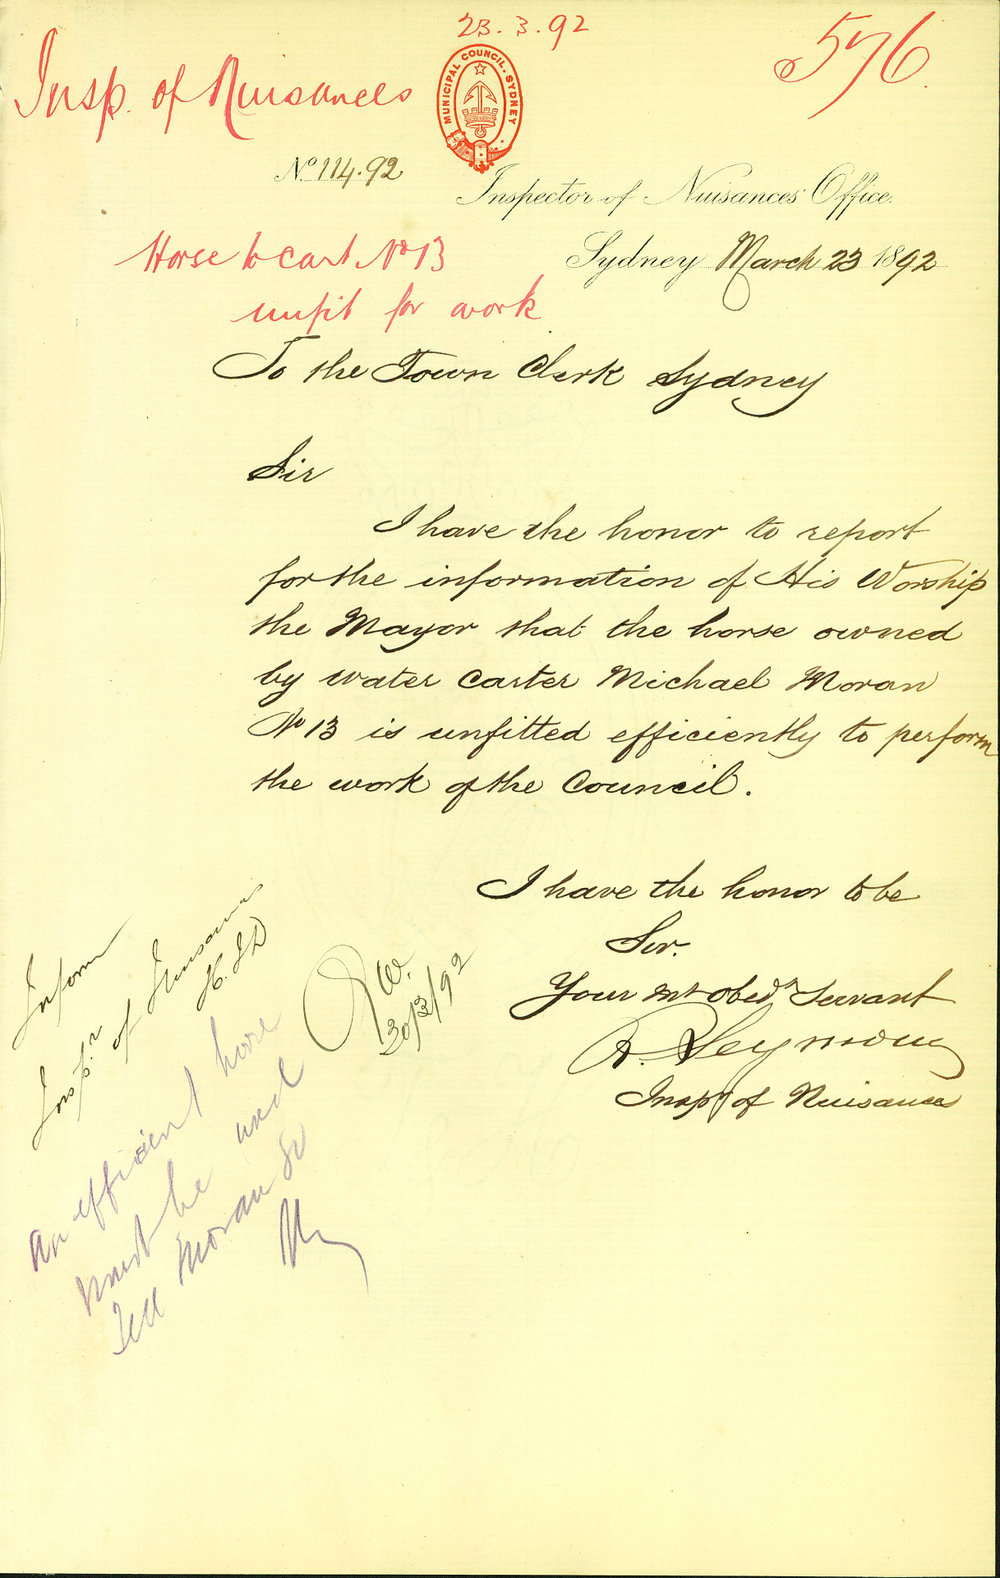 23.3.92
576
Insp. of Nuisances
MUNICIPAL COUNCIL. SYDNEY
No 114.92
Inspector of Nuisances Office.
Sydney March 23 1892
Horse to cart No 13
unfit for work
To the Town Clerk Sydney
Sir
I have the honor to report
for the information of His Worship
the Mayor that the horse owned
by water carter Michael Moran
No 13 is unfitted efficiently to perform
the work of the Council.
I have the honor to be
Sir.
Your mt obedt Servant
R. Seymour
Inspr of Nuisances
Inform
Inspr of Nuisances
30/3/92
An efficient horse
must be used
Tell Moran So